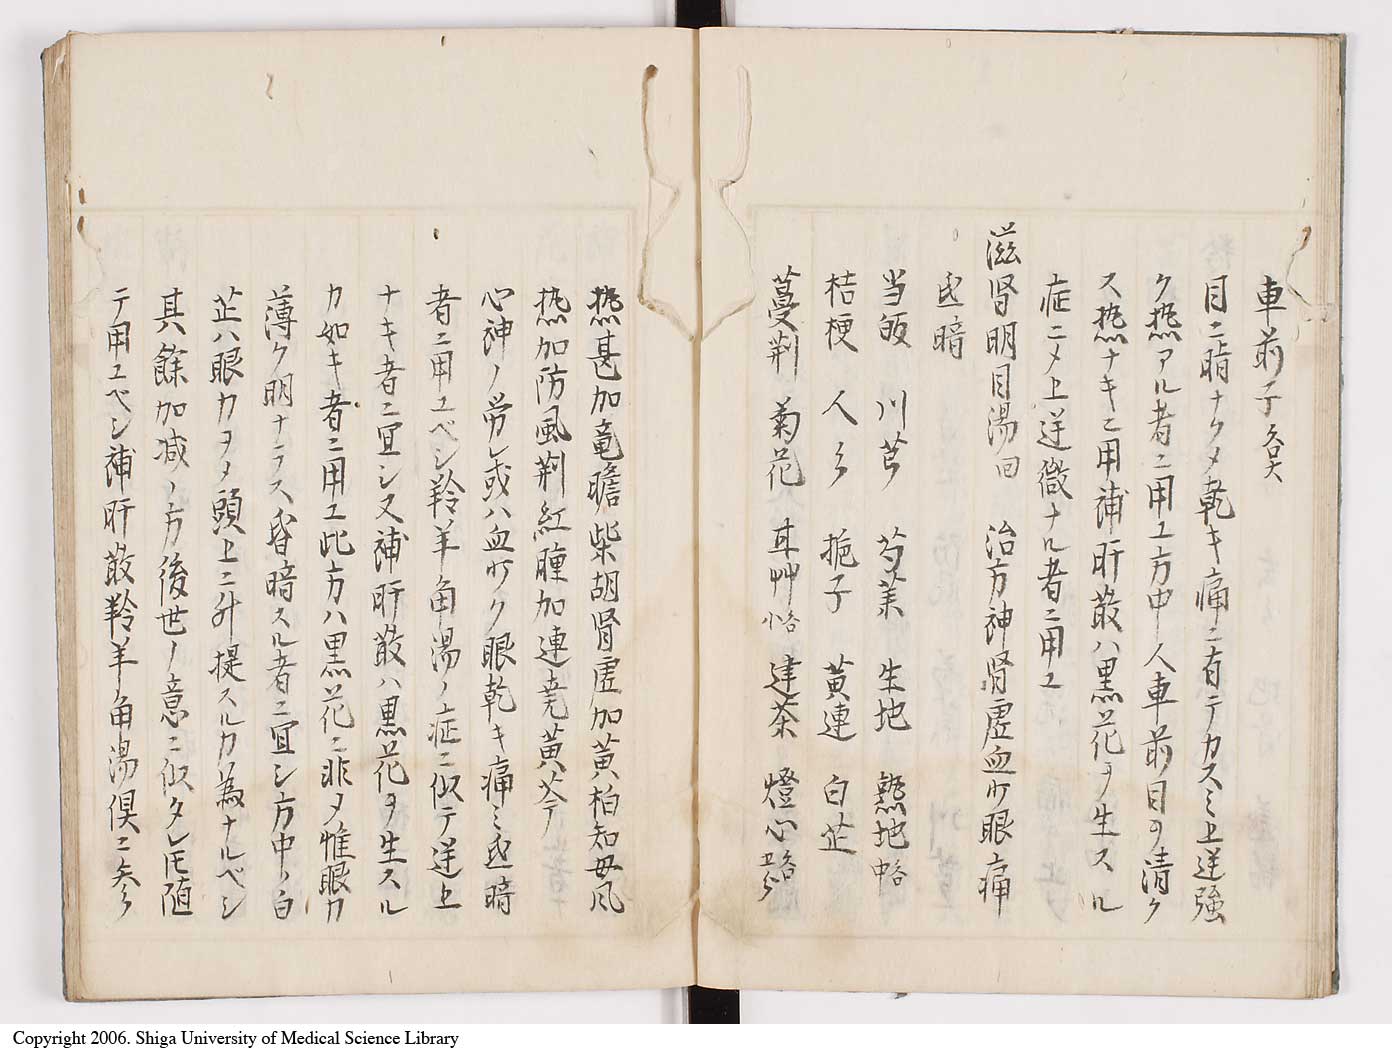 車前子各大
目ニ暗ナクメ乾キ痛ニ有テカスミ上逆強
ク熱アル者ニ用ユ方中人車前目ヲ清ク
ス熱ナキニ用補肝散ハ黒花ヲ生スル
症ニメ上逆微ナル者ニ用ユ
滋腎明目湯回 治方神腎虚血少眼痛
昏暗
当皈 川芎 芍薬 生地 熟地中各
桔梗 人参 梔子 黄連 白芷
蔓荆 菊花 甘艸小各 建茶 燈心各
熱甚加竜膽柴胡腎虚加黄柏知母風
熱加防風荆紅腫加連堯黄芩
心神ノ労レ或ハ血少ク眼乾キ痛ミ昏暗
者ニ用ユベシ羚羊角湯ノ症ニ似テ逆上
ナキ者ニ宜シ又補肝散ハ黒花ヲ生スル
カ如キ者ニ用ユ此方ハ黒花ニ非メ惟眼力
薄ク明ナラス昏暗スル者ニ宜シ方中ノ白
芷ハ眼力ヲメ頭上ニ升提スルカ為ナルベシ
其餘加减ノ方後世ノ意ニ似タレ𪜈随
テ用ユベシ補肝散羚羊角湯倶ニ参
Copyright 2006. Shiga University of Medical Science Library